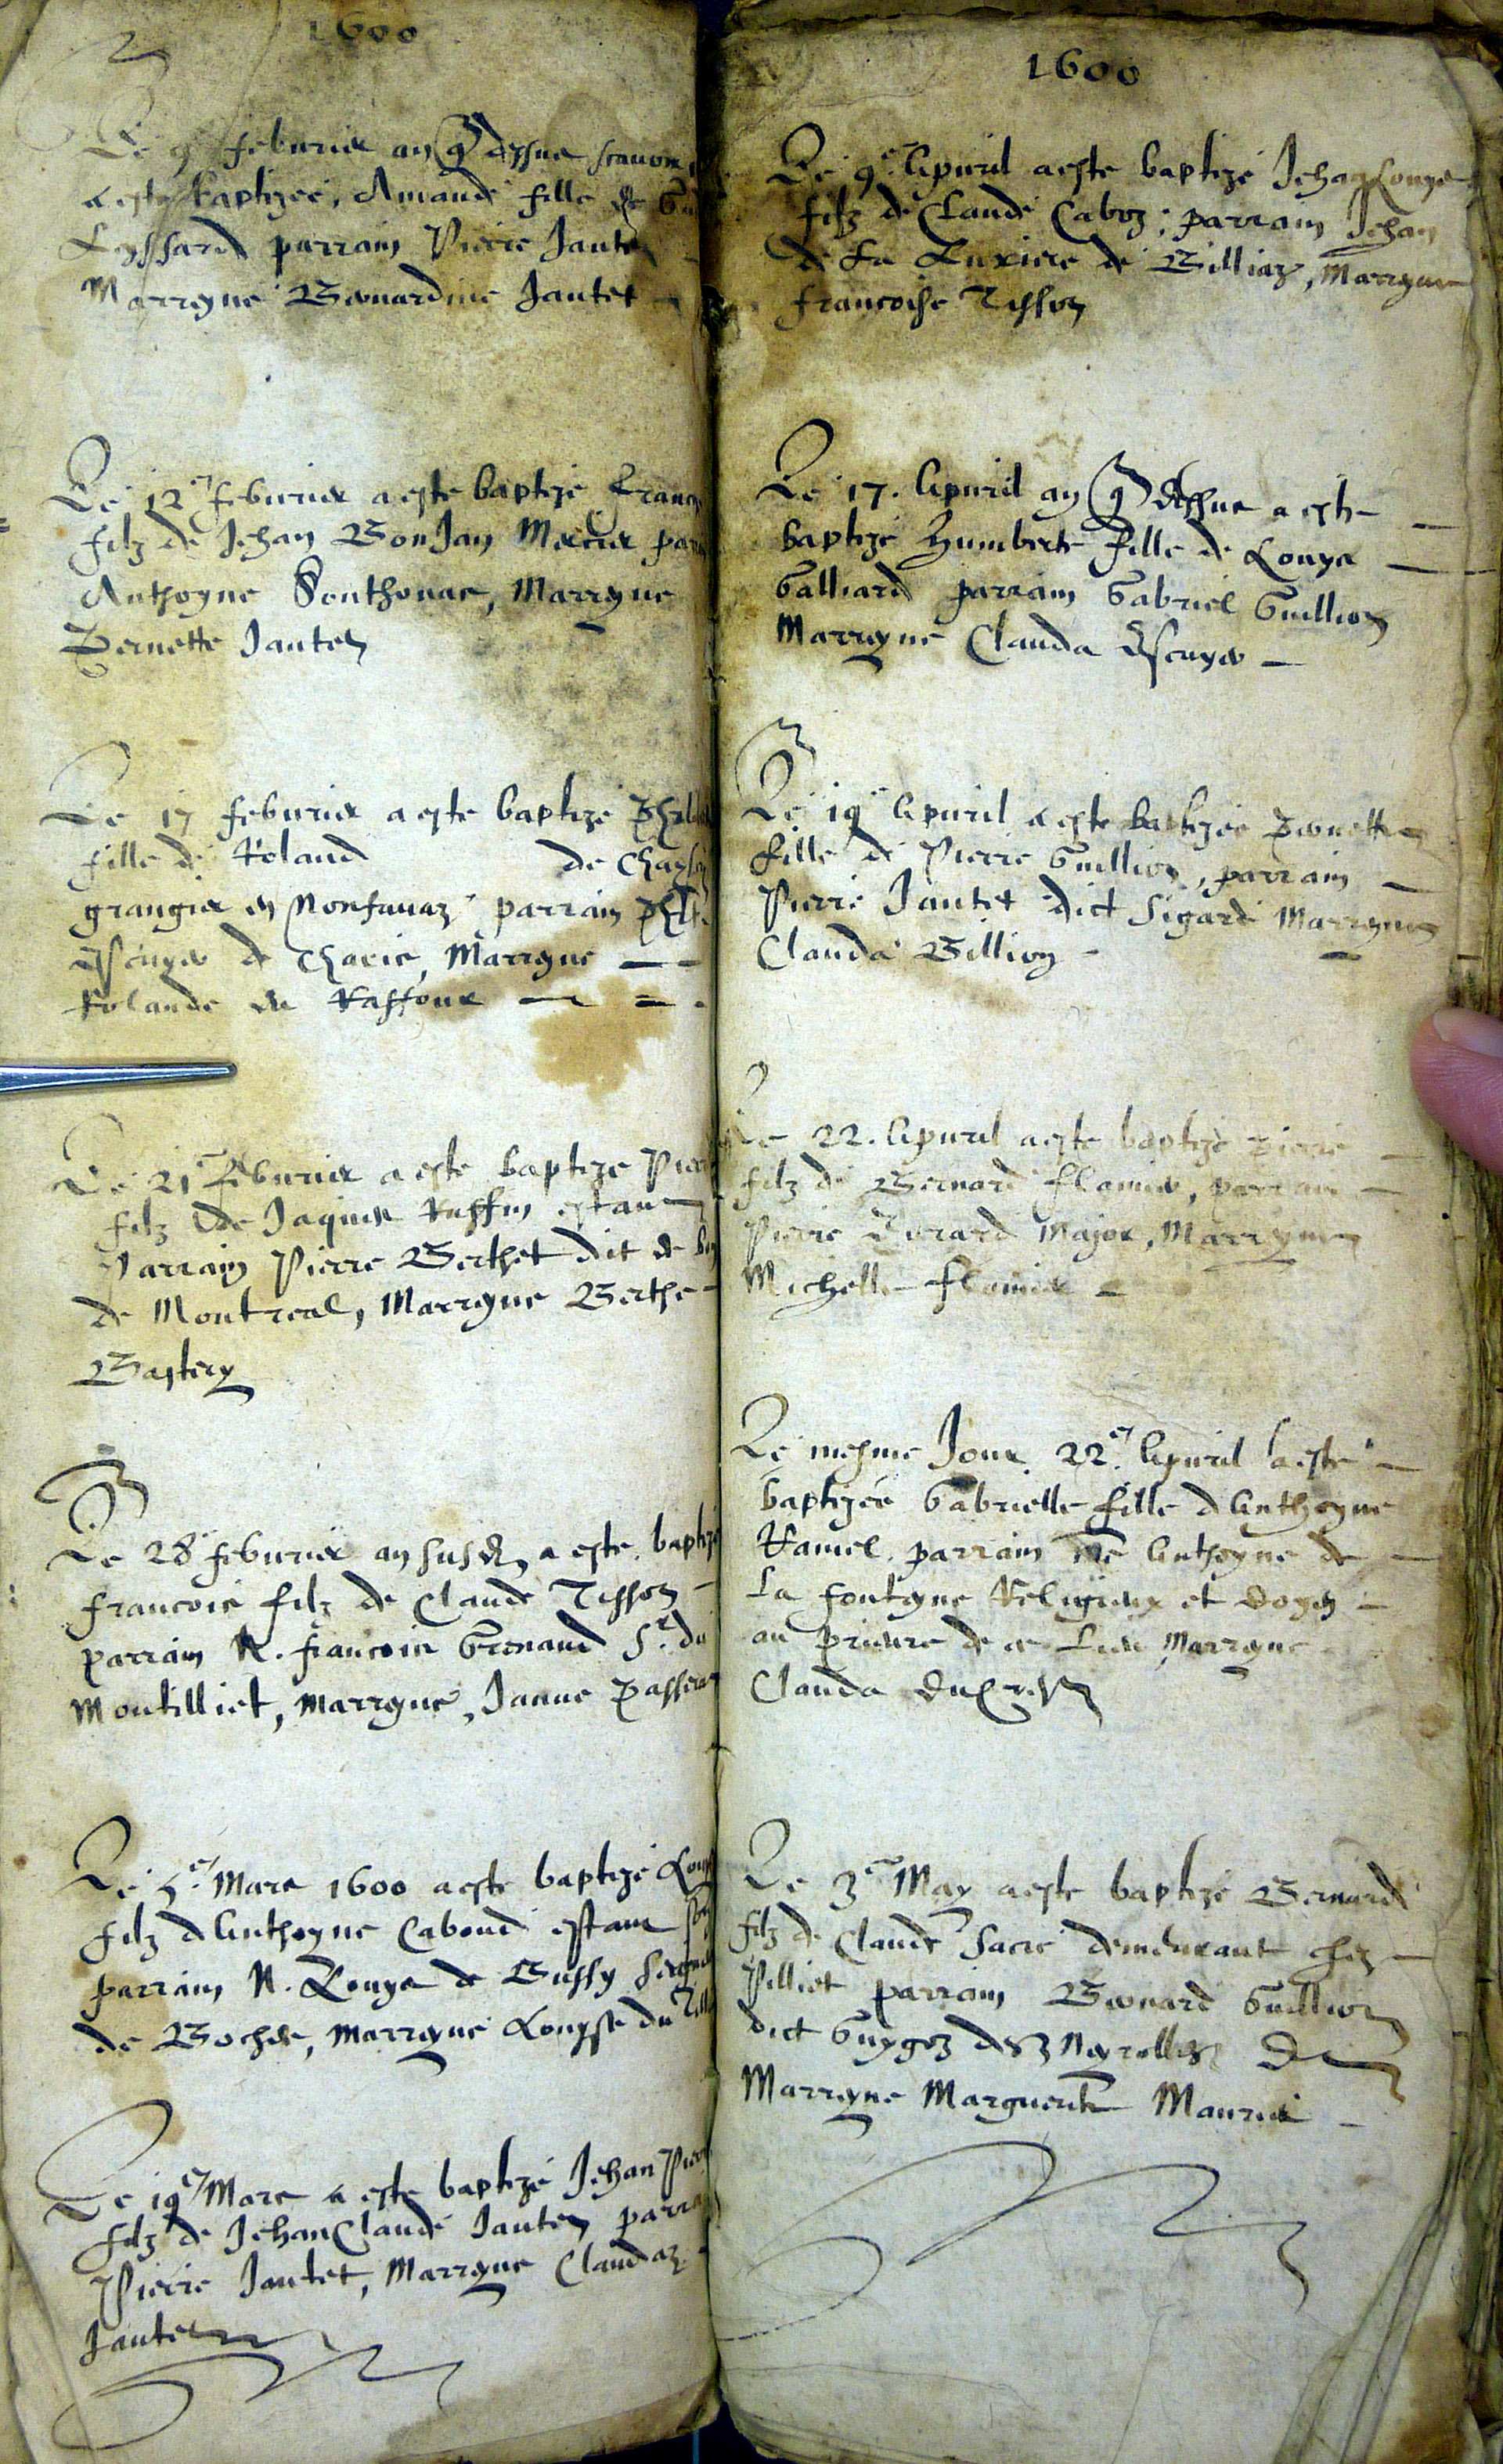 1600
Le 9 feburier an q dessus scavoir
a este baptizee, Amande fille de
Loyssard parrain Pierre Jantet
Marryne Bernardine Jantet
Le 12e feburier a este baptize Franc
filz de Jehan BonJan Mercier par
Anthoyne Sonthonas, Marryne
Pernette Jantet
Le 17 feburier a este baptize
fille de Roland de
grangier en Monfavaz parrain
Escuyer de Charix, Marryne
Rolande de Raffour
Le 21e feburier a este baptize Pier
filz de Jaques Ruffin estan
Parrain Pierre Berthet dit de
de Montreal, Marryne Berthe
Bastery
Le 28e feburier an susd a este bapti
francois filz de Claude Tisson
parrain N. francois Grenaud Sr. du
Montilliet, Marryne, Janne Passera
Le 5e Mars 1600 a este baptize Louy
filz d Anthoyne Caboud estant
parrain N. Louys de Bussy
de Boches, Marryne Louyse du
Le 19e Mars a este baptize Jehan Pier
filz de Jehan Claude Jantet parra
Pierre Jantet, Marryne Claudaz
Jantet
1600
Le 9e. Apuril a este baptize Jehan Louys
filz de Claude Caboz, parrain Jehan
de la Luxiere de Billiaz, Marryne
francoise Tisson
Le 17. Apuril an q dessus a este
baptize Humberte fille de Louys
Galliard parrain Gabriel Guillion
Marryne Clauda Escuyer
Le 19e Apuril a este baptizee Pernette
fille de Pierre Guillion, parrain
Pierre Jantet dict Sigard Marryne
Clauda Billion
Le 22. Apuril a este baptize Pierre
filz de Bernard flamier, parrain
Pierre Evrard Major, Marryne
Michelle flamier
Le mesme Jour 22e. Apuril a este
baptizee Gabrielle fille d Anthoyne
Ramel. parrain Anthoyne de
la fonteyne Religieux et Doyen
au prieure de ce lieu Marryne
Clauda
Le 3e May a este baptize Bernard
filz de Claude Sacre demeurant chez
Pilliet parrain Bernard Guillion
dict Guygoz des Neyrolles
Marryne Marguerite Maurier